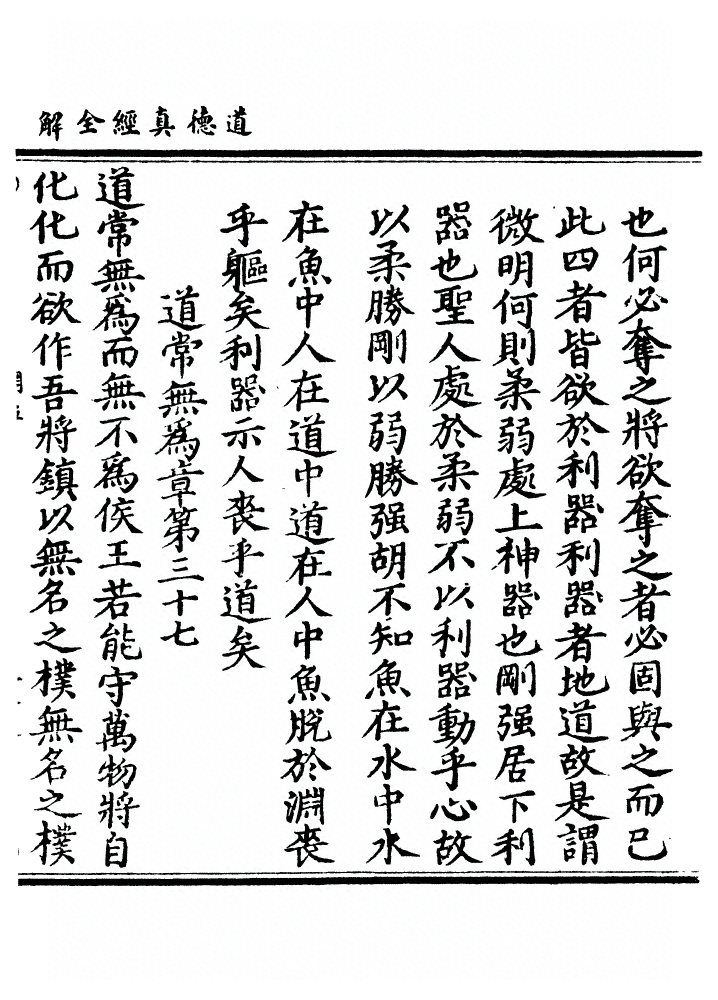 道德真經全解
也何必奪之將欲奪之者必固與之而已
此四者皆欲於利器利器者地道故是謂
微明何則柔弱處上神器也剛强居下利
器也聖人處於柔弱不以利器動乎心故
以柔勝剛以弱勝强胡不知魚在水中水
在魚中人在道中道在人中魚脫於淵喪
乎軀矣利器示人喪乎道矣
道常無爲章第三十七
道常無爲而無不爲侯王若能守萬物將自
化化而欲作吾將鎮以無名之樸無名之樸